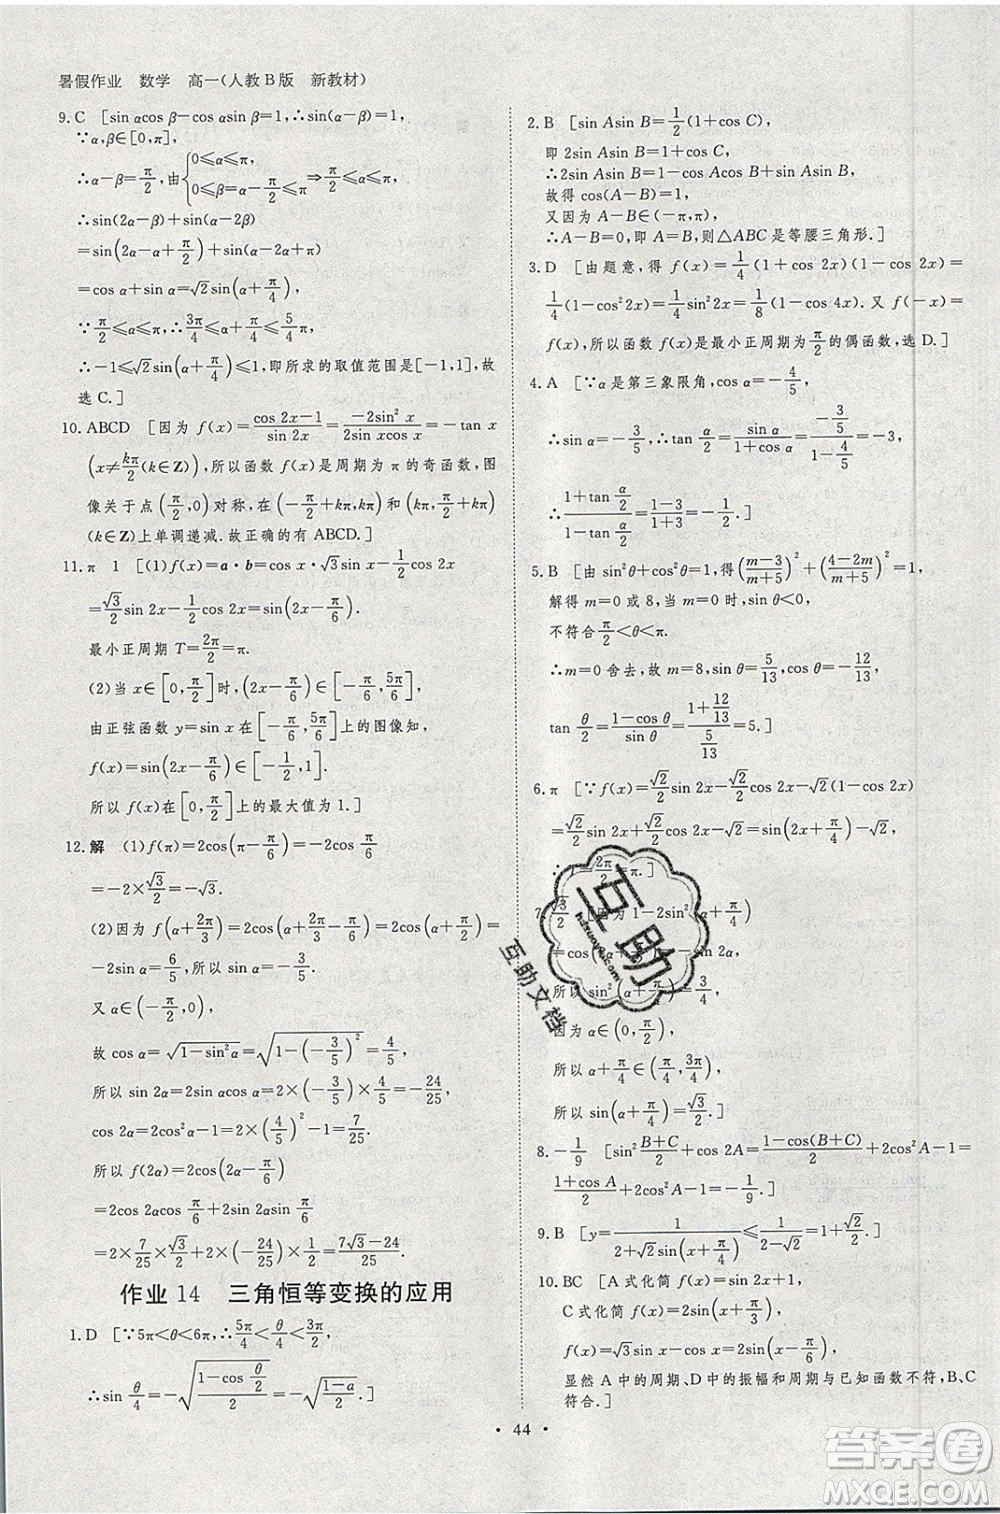 暑假作业　数学　高一(人教B版　新教材)
9.C　[sin αcos β-cos αsin β=1,∴sin(α-β)=1,
∵α,β∈[0,π],
∴α-β=π/2,由{0≤α≤π 0≤β=α-π/2≤π⇒π/2≤α≤π,
∴sin(2α-β)+sin(α-2β)
=sin(α+π/2)+sin(α-2α+π)
=cos α+sin α=√2sin(α+π/4),
∵π/2≤α≤π,∴3π/4≤α+π/4≤5/4π,
∴-1≤√2sin(α+π/4)≤1,即所求的取值范围是[-1,1],故
选C.]
10.ABCD　[因为f(x)=(cos 2x-1)/(sin 2x)=(-2sin² x)/(2sin xcos x)=-tan x
(x≠kπ/2(k∈Z)),所以函数f(x)是周期为π的奇函数,图
像关于点(π/2,0)对称,在(π/2+kπ,kπ)和(kπ,π/2+kπ)
(k∈Z)上单调递减.故正确的有ABCD.]
11.π　1　[(1)f(x)=a·b=cos x·√3sin x-1/2cos 2x
=√3/2sin 2x-1/2cos 2x=sin(2x-π/6).
最小正周期T=2π/2=π.
(2)当x∈[0,π/2]时,(2x-π/6)∈[-π/6,5π/6],
由正弦函数y=sin x在[-π/6,5π/6]上的图像知,
f(x)=sin(2x-π/6)∈[-1/2,1].
所以f(x)在[0,π/2]上的最大值为1.]
12.解　(1)f(π)=2cos(π-π/6)=-2cosπ/6
=-2×√3/2=-√3.
(2)因为f(α+2π/3)=2cos(α+2π/3-π/6)=2cos(α+π/2)=
-2sin α=6/5,所以sin α=-3/5.
又α∈(-π/2,0),
故cos α=√(1-sin²α)=√(1-(-3/5)²)=4/5,
所以sin 2α=2sin αcos α=2×(-3/5)×4/5=-24/25,
cos 2α=2cos²α-1=2×(4/5)²-1=7/25,
所以f(2α)=2cos(2α-π/6)
=2cos 2αcosπ/6+2sin 2αsinπ/6
=2×7/25×√3/2+2×(-24/25)×1/2=(7√3-24)/25.
作业14　三角恒等变换的应用
1.D　[∵5π<θ<6π,∴5π/4<θ/4<3π/2,
∴sinθ/4=-√((1-cosθ/2)/2)=-√((1-a)/2).]
2.B　[sin Asin B=1/2(1+cos C),
即2sin Asin B=1+cos C,
∴2sin Asin B=1-cos Acos B+sin Asin B,
故得cos(A-B)=1,
又因为A-B∈(-π,π),
∴A-B=0,即A=B,则△ABC是等腰三角形.]
3.D　[由题意,得f(x)=1/4(1+cos 2x)(1-cos 2x)=
1/4(1-cos²2x)=1/4sin²2x=1/8(1-cos 4x).又f(-x)=
f(x),所以函数f(x)是最小正周期为π/2的偶函数,选D.]
4.A　[∵α是第三象限角,cos α=-4/5,
∴sin α=-3/5,∴tanα/2=sin α/(1+cos α)=(-3/5)/(1-4/5)=-3,
∴(1+tanα/2)/(1-tanα/2)=(1-3)/(1+3)=-1/2.]
5.B　[由sin²θ+cos²θ=1,得((m-3)/(m+5))²+((4-2m)/(m+5))²=1,
解得m=0或8,当m=0时,sin θ<0,
不符合π/2<θ<π.
∴m=0舍去,故m=8,sin θ=5/13,cos θ=-12/13,
tanθ/2=(1-cos θ)/sin θ=(1+12/13)/(5/13)=5.]
6.π　[∵f(x)=√2/2sin 2x-√2/2cos 2x-√2(1-cos 2x)
=√2/2sin 2x+√2/2cos 2x-√2=sin(2x+π/4)-√2,
∴T=2π/2=π.]
7.√3/2　[因为1-2sin²(α+π/4)
=cos(2α+π/2)=-sin 2α=-1/2,
所以sin²(α+π/4)=3/4,
因为α∈(0,π/4),
所以α+π/4∈(π/4,π/2),
所以sin(α+π/4)=√3/2.]
8.-1/9　[sin²(B+C)/2+cos 2A=(1-cos(B+C))/2+2cos²A-1=
(1+cos A)/2+2cos²A-1=-1/9.]
9.B　[y=1/(2+√2sin(x+π/4))≤1/(2-√2)=1+√2/2.]
10.BC　[A式化简f(x)=1/2sin 2x,
C式化简f(x)=2sin(x+π/3),
f(x)=√3sin x+cos x=2sin(x+π/6),
显然A中的周期、D中的振幅和已知函数不符,B、C
符合.]
• 44 •
互助
互助文档
答案卷
MXQE.COM